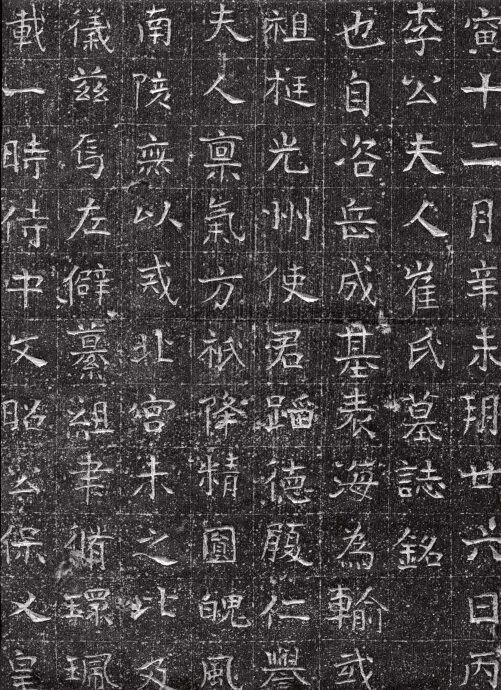 寅十二月辛未朔廿六日丙
李公夫人崔氏墓誌銘
也自咨岳成基表海為輸或
祖梃光州使君蹈德履仁譽
夫人禀氣方祇降精圓魄風
南陔無以戒北宮未之比及
儀兹焉左僻纂組書脩環珮
載一時侍中文昭公保乂皇